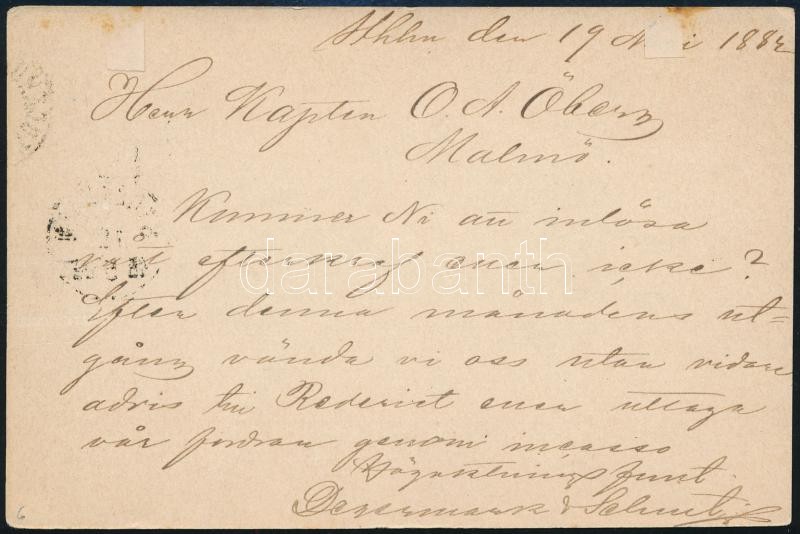 Sthlm den 19 Maj 1882
Herr Kapten O. A. Öberg
Malmö.
Kommer Ni att inlösa
vårt efterkraf eller icke?
Efter denna månadens ut=
gång vända vi oss utan vidare
advis till Rederiet eller uttaga
vår fordran genom incasso
Högaktningsfullt
&
darabanth
6